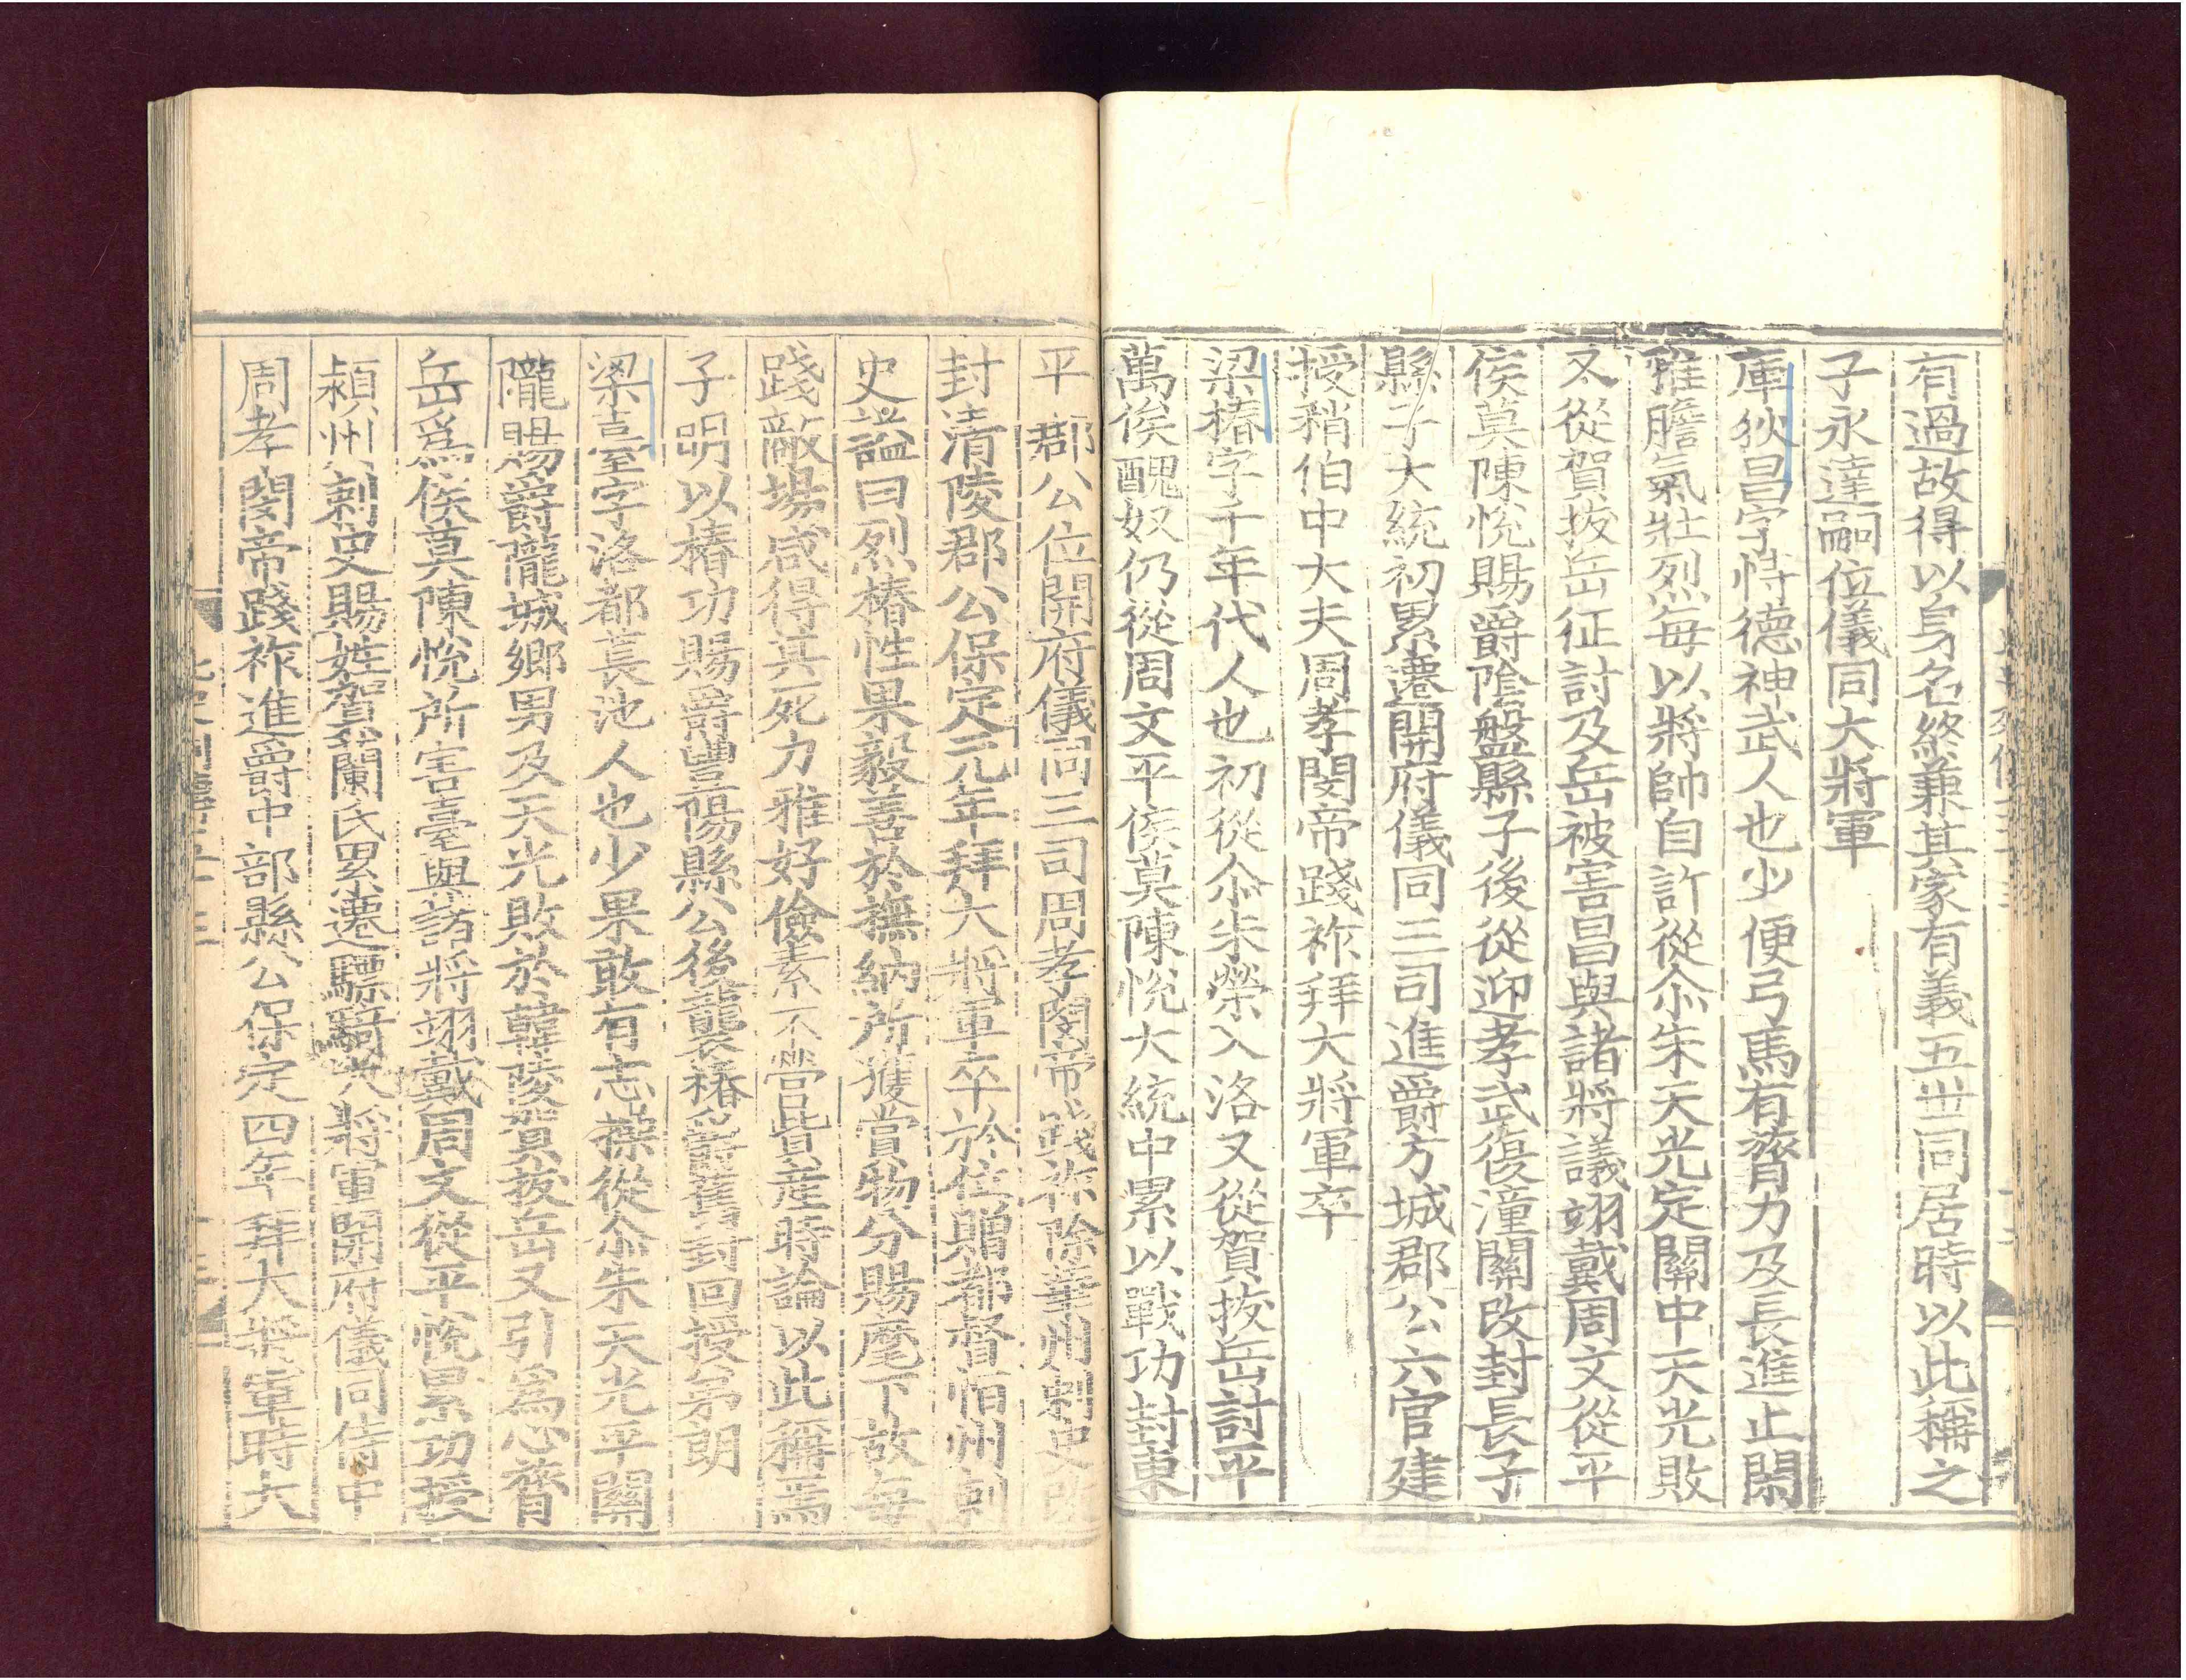 有過故得以身名終兼其家有義五世同居時以此稱之
子永達嗣位儀同大將軍
庫狄昌字恃德神武人也少便弓馬有膂力及長進止閑
雅膽氣壯烈每以將帥自許從尒朱天光定關中天光敗
冬從賀拔岳征討及岳被害昌與諸將議翊戴周文從平
侯莫陳悅賜爵陰盤縣子後從迎孝武復潼關改封長子
縣子大統初累遷開府儀同三司進爵方城郡公六官建
授稍伯中大夫周孝閔帝踐祚拜大將軍卒
梁椿字千年代人也初從尒朱榮入洛又從賀拔岳討平
萬俟醜奴仍從周文平侯莫陳悅大統中累以戰功封東
平郡公位開府儀同三司周孝閔帝踐祚除華州刺史改
封清陵郡公保定元年拜大將軍卒於位贈都督恒州刺
史謚曰烈椿性果毅善於撫納所獲賞物分賜麾下故每
踐敵場咸得其死力雅好儉素不營貲產時論以此稱焉
子明以椿功賜爵豐陽縣公後襲椿爵舊封回授弟朗
梁臺字洛都長池人也少果敢有志操從尒朱天光平關
隴賜爵隴城鄉男及天光敗於韓陵賀拔岳又引爲心膂
岳爲侯莫陳悅所害臺與諸將翊戴周文從平悅累功授
潁州刺史賜姓賀蘭氏累遷驃騎大將軍開府儀同侍中
周孝閔帝踐祚進爵中部縣公保定四年拜大將軍時大